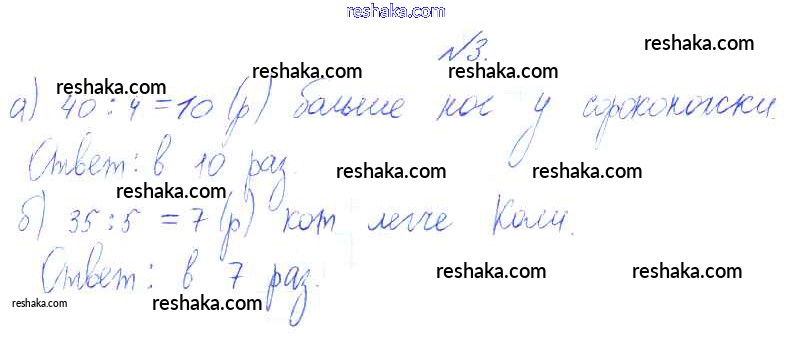 reshaka.com
№3. reshaka.com
reshaka.com reshaka.com reshaka.com
а) 40 : 4 = 10 (р) больше ног у сороконожки.
reshaka.com reshaka.com
Ответ: в 10 раз.
reshaka.com reshaka.com reshaka.com
б) 35 : 5 = 7 (р) кот легче Коли.
Ответ: в 7 раз.
reshaka.com reshaka.com
reshaka.com reshaka.com